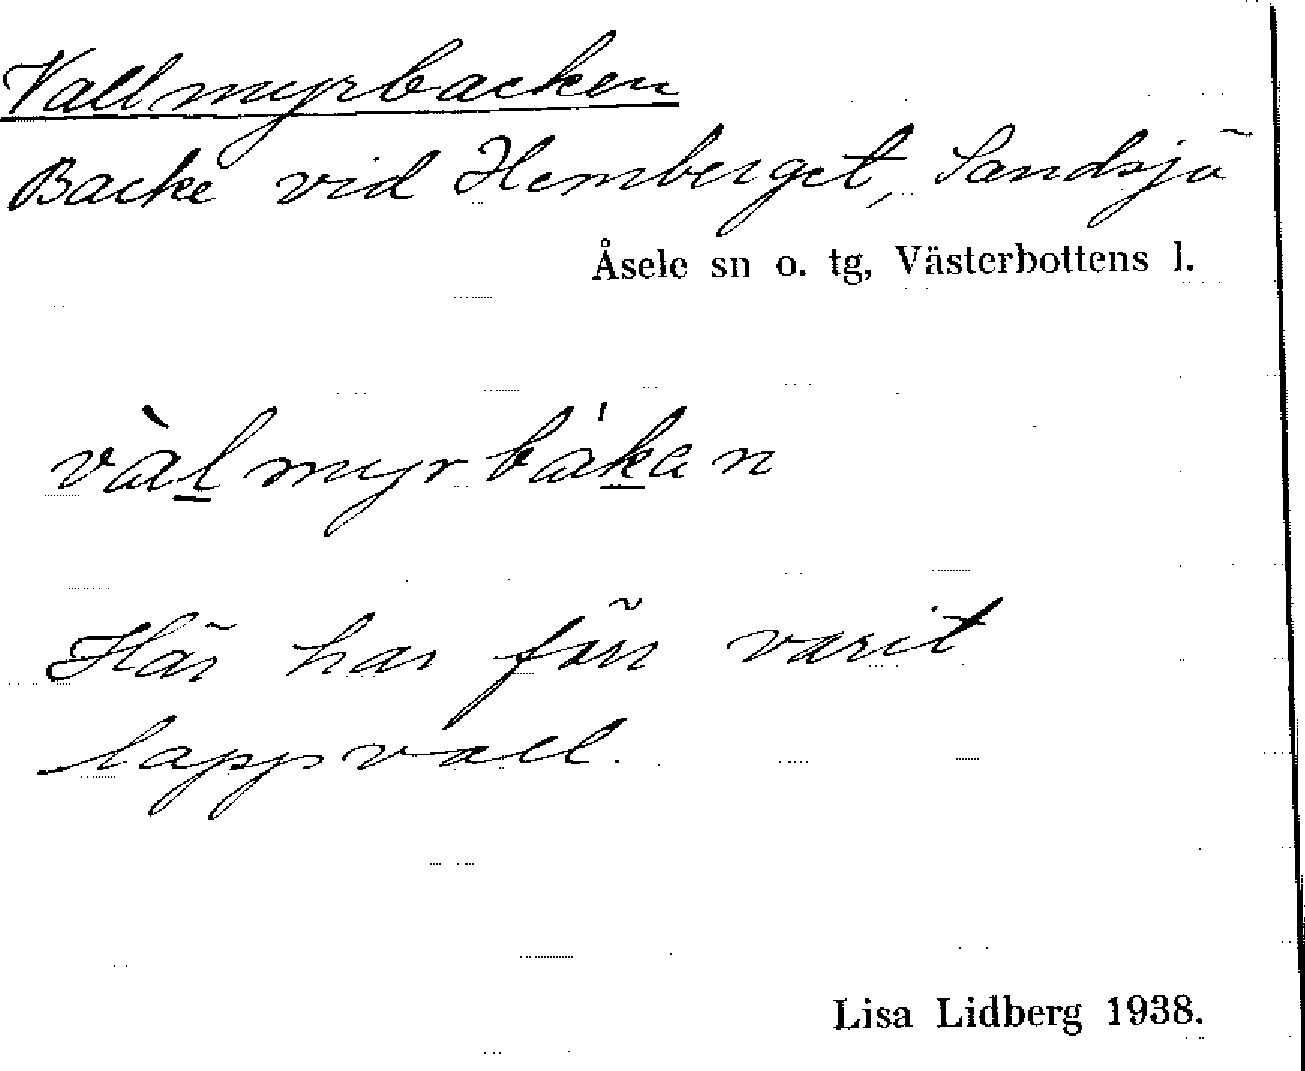 Vallmyrbacken
Backe vid Hemberget, Sandsjö
Åsele sn o. tg, Västerbottens l.
vàl̲myrbák̲an
Här har förr varit
lappvall.
Lisa Lidberg 1938.